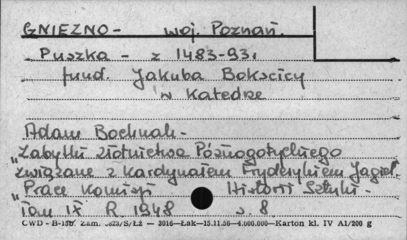 GNIEZNO - woj. Poznań.
Puszka - z 1483-93r
fund. Jakuba Bokscicy
w Katedze
Adam Bochnak -
"Zabytki złotnictwa Późnogotyckiego
związane z Kardynałem Fryderykiem Jagiel.
"Prace Komisji Historii Sztuki -
Tom IX R. 1948 s. 8
CWD - B-150 Zam. S/Łż — 2016—Łak—15.11.56—4.000.000—Karton kl. IV A1/200 g